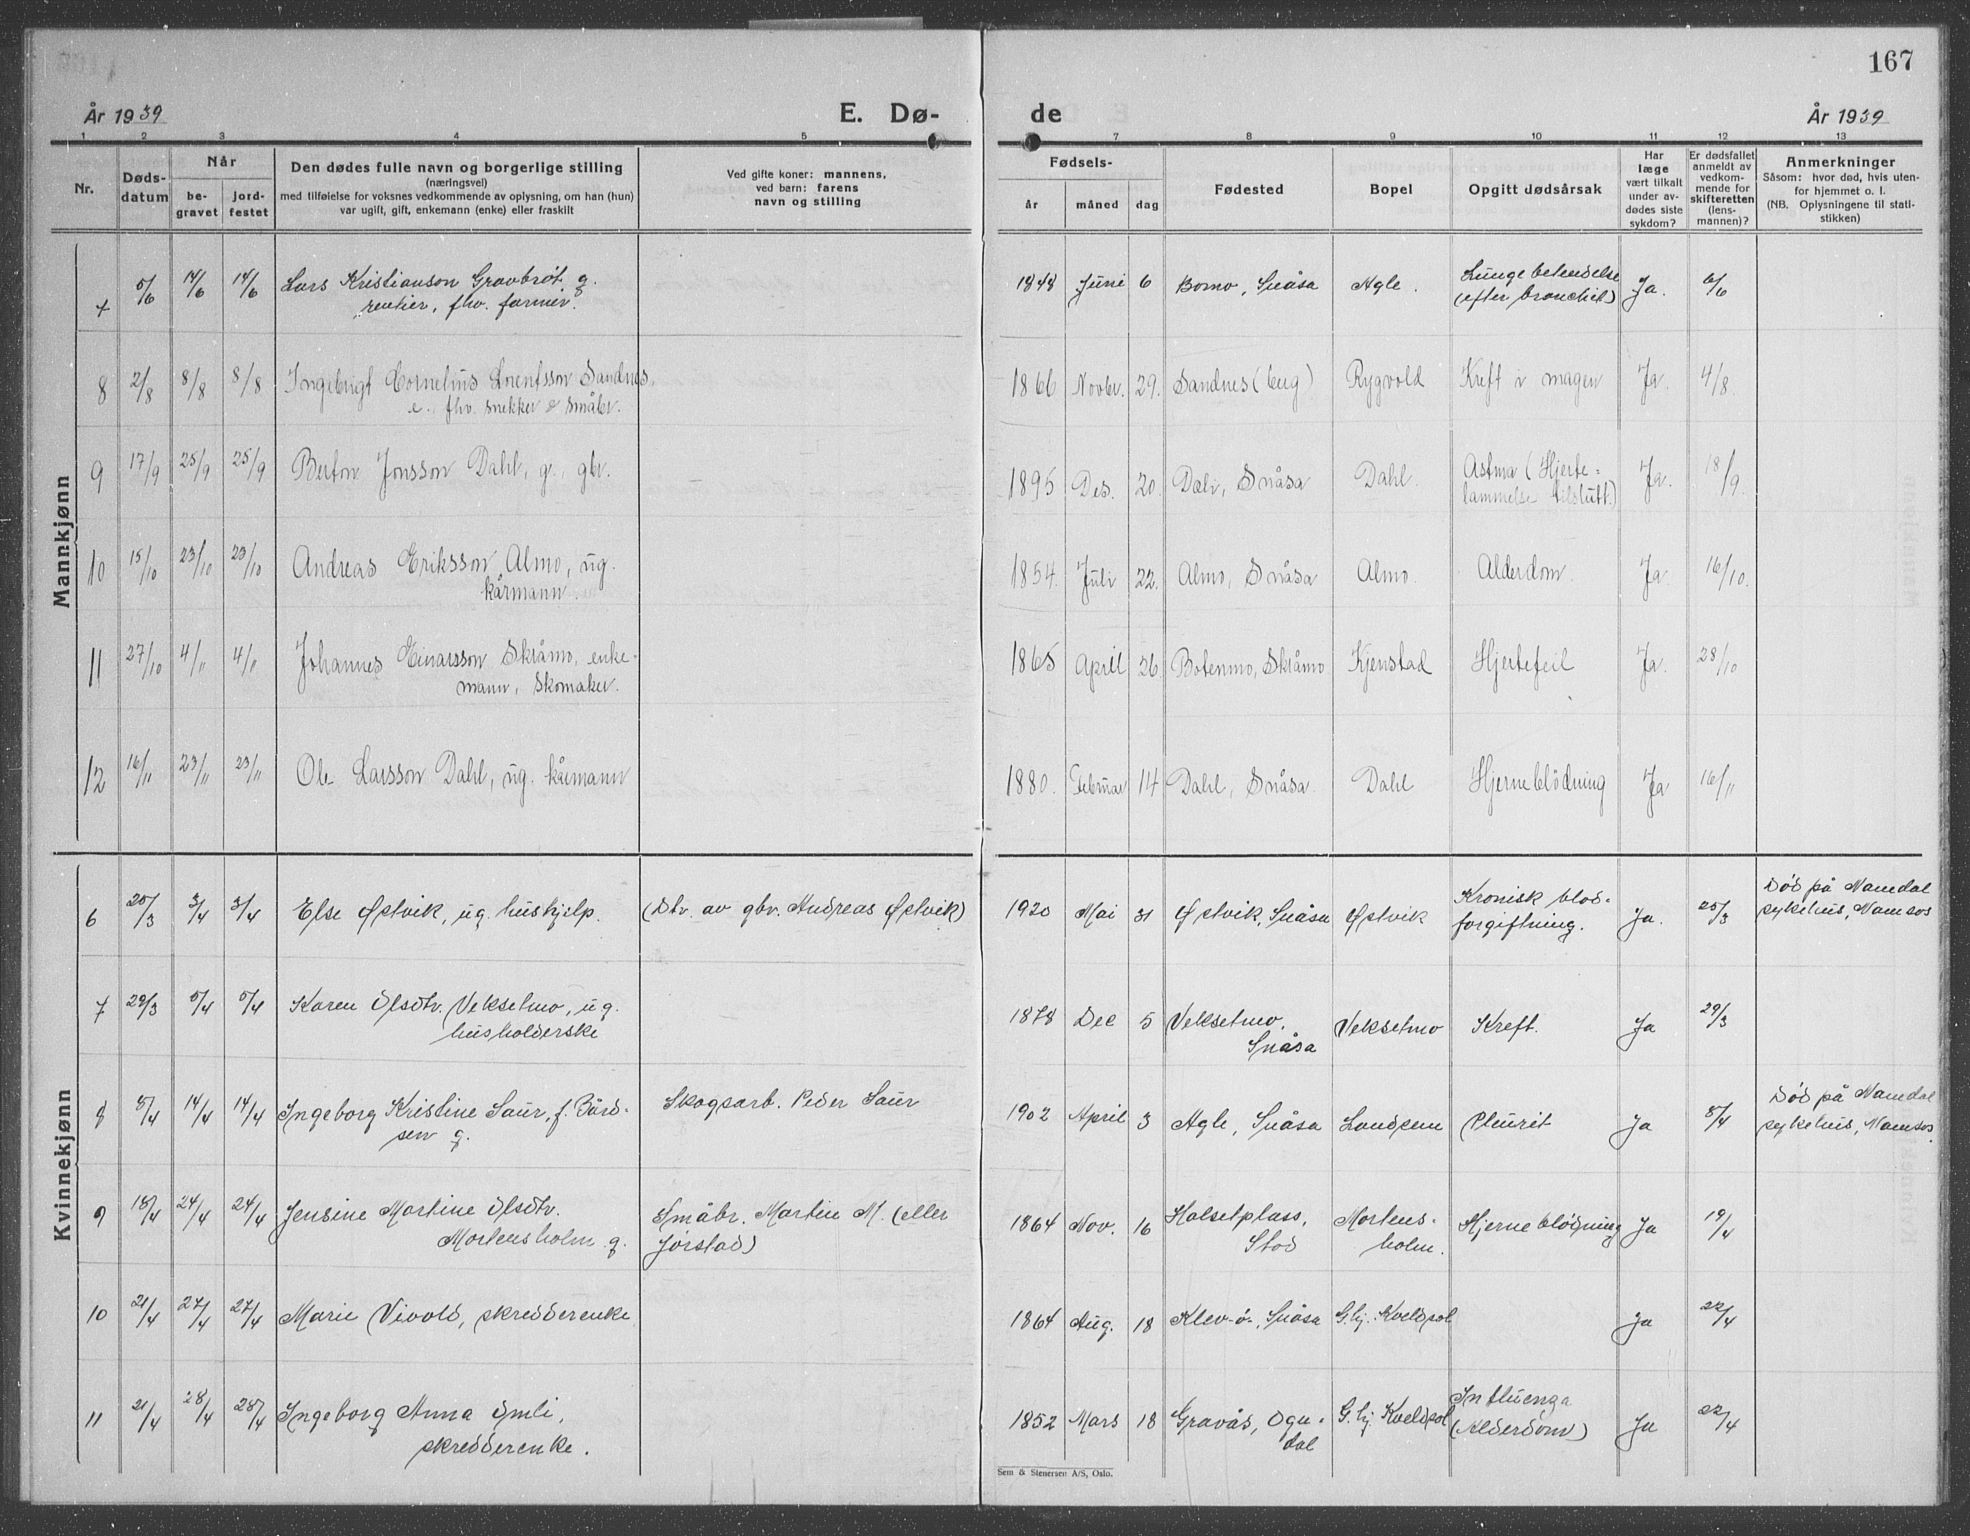 167
År 1939 E. Dø- de År 1939
1 2 3 4 5 7 8 9 10 11 12 13
Nr. Døds-datum Når be-gravet jord-festet
Den dødes fulle navn og borgerlige stilling
(næringsvei)
med tilføielse for voksnes vedkommende av oplysning, om han (hun)
var ugift, gift, enkemann (enke) eller fraskilt
Ved gifte koner: mannens,
ved barn: farens
navn og stilling
Fødsels-
år måned dag
Fødested
Bopel
Opgitt dødsårsak
Har
læge
vært tilkalt
under av-
dødes siste
sykdom?
Er dødsfallet
anmeldt av
vedkom-
mende for
skifteretten
(lens-
mannen)?
Anmerkninger
Såsom: hvor død, hvis uten-
for hjemmet o. l.
(NB. Oplysningene til stati-
stikken)
Mannkjønn
7 5/6 14/6 14/6 Lars Kristianson Gravbrøt, g. 1848 Juni 6 Bomo, Snåsa Agle. Lungebetendelse Ja. 6/6
rentier, fhv. farmer. (efter bronchit)
8 2/8 8/8 8/8 Ingebrigt Cornelius Lorentsson Sandnes, 1866 Novbr. 29. Sandnes (berg) Rygvold Kreft i magen Ja. 4/8.
e., fhv. snekker & småbr.
9 17/9 25/9 25/9 Berton Jonsson Dahl, g., gbr. 1895 Des. 20. Dali, Snåsa Dahl. Astma (Hjerte= Ja. 18/9.
lammelse tilslutt.)
10 15/10 23/10 23/10 Andreas Eriksson Almo, ug. 1854. Juli 22. Almo, Snåsa Almo. Alderdom Ja. 16/10.
kårmann.
11 27/10 4/11 4/11 Johannes Einarsson Skråmo, enke- 1865 April 26 Botenmo, Skråmo Kjenstad Hjertefeil Ja. 28/10
mann, skomaker.
12 16/11 23/11 23/11 Ole Larsson Dahl, ug. kårmann 1880. Februar 14 Dahl, Snåsa. Dahl Hjerneblödning Ja 16/11
Kvinnekjønn
6 25/3 3/4 3/4 Else Østvik, ug. hushjelp. (Dtr. av gbr. Andreas Østvik) 1920 Mai 31 Østvik, Snåsa Østvik Kronisk blod- Ja. 25/3 Död på Namdal
forgiftning. sykehus, Namsos
7 29/3 5/4 5/4 Karen Olsdtr. Vekselmo, ug. 1878 Dec 5 Vekselmo, Vekselmo Kreft. Ja 29/3
husholderske Snåsa
8 8/4 14/4 14/4 Ingeborg Kristine Saur, f. Bård- Skogsarb. Peder Saur 1902 April 3 Agle, Snåsa Landsem Pleurit Ja 8/4 Död på Namdal
sen g. sykehus, Namsos.
9 18/4 24/4 24/4 Jensine Martine Olsdtr. Småbr. Martin M. (eller 1864 Nov. 16 Halsetplass, Mortens- Hjerneblödning Ja 19/4
Mortensholm g. Jørstad) Stod holm.
10 21/4 27/4 27/4 Marie Vivold, skredderenke 1864 Aug. 18 Klev-ö-, Snåsa G.hj. Kveldsol Ja 22/4
11 21/4 28/4 28/4 Ingeborg Anna Omli, 1852 Mars 18 Gravås, Ogn- G.hj. Kveldsol Influenza Ja 22/4
skredderenke. dal (Alderdom)
Sem & Stenersen A/S, Oslo.